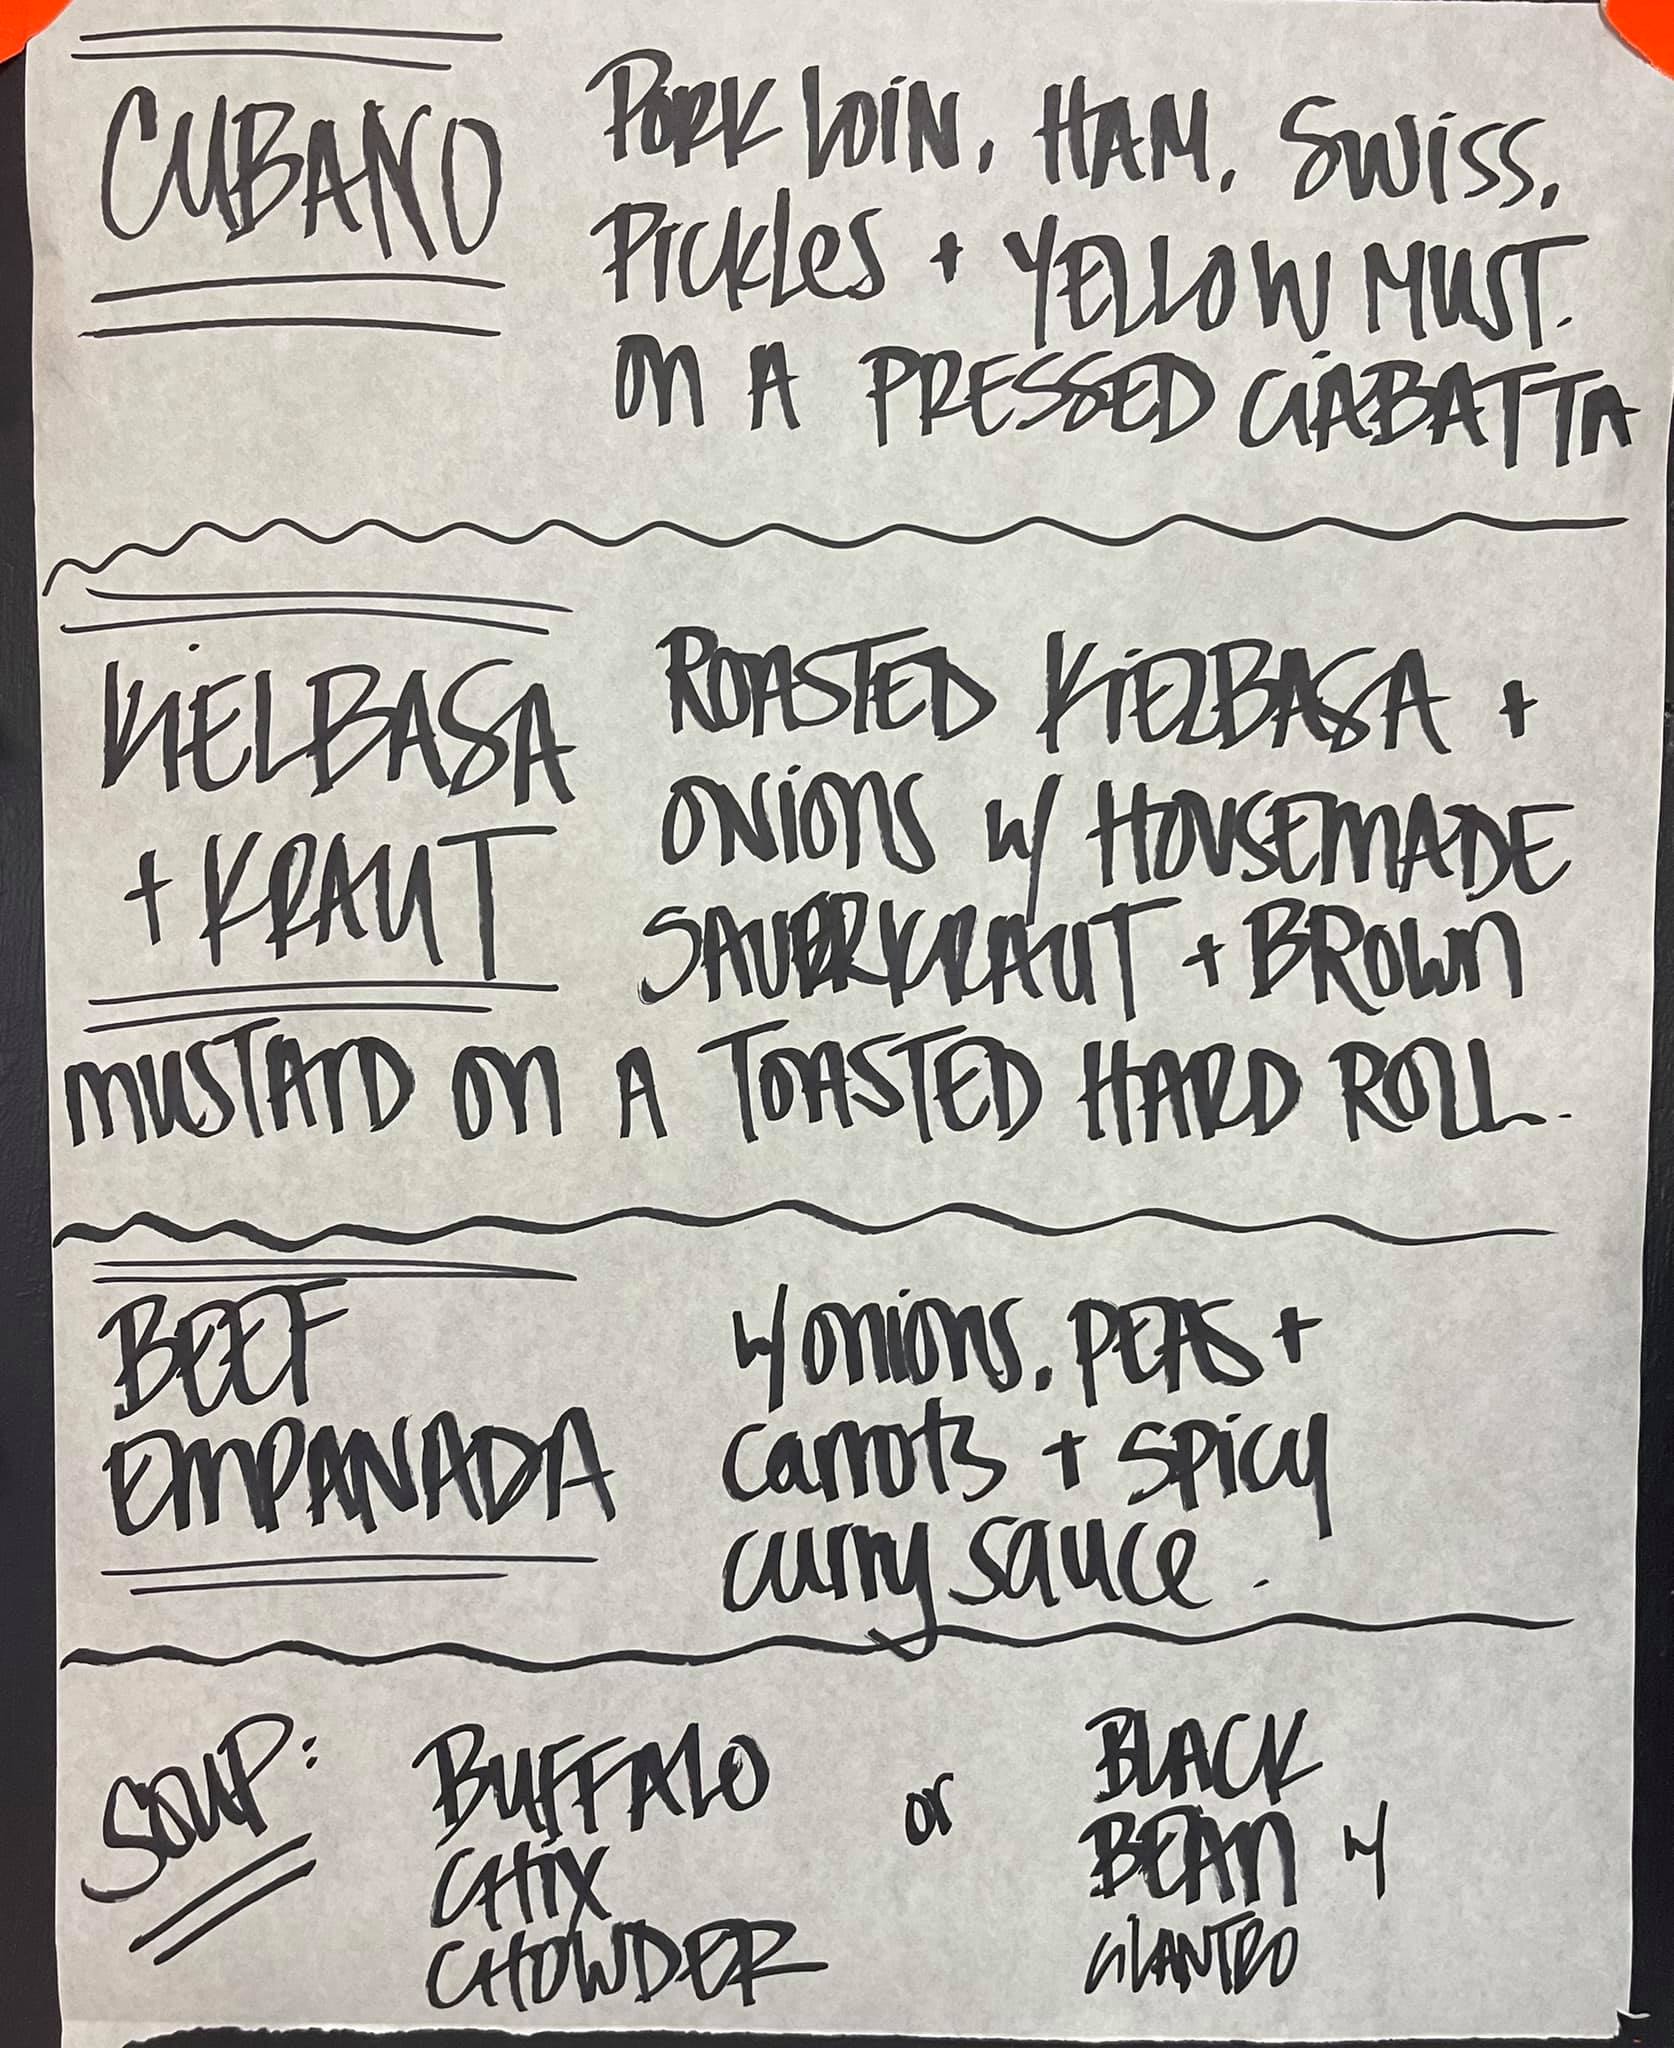 CUBANO
PORK LOIN, HAM, SWISS,
PICKLES + YELLOW MUST.
ON A PRESSED CIABATTA
KIELBASA
+ KRAUT
ROASTED KIELBASA +
ONIONS w/ HOUSEMADE
SAUERKRAUT + BROWN
MUSTARD ON A TOASTED HARD ROLL.
BEEF
EMPANADA
w/ onions, PEAS +
carrots + spicy
curry sauce.
SOUP:
BUFFALO
CHIX
CHOWDER
or
BLACK
BEAN w/
CILANTRO